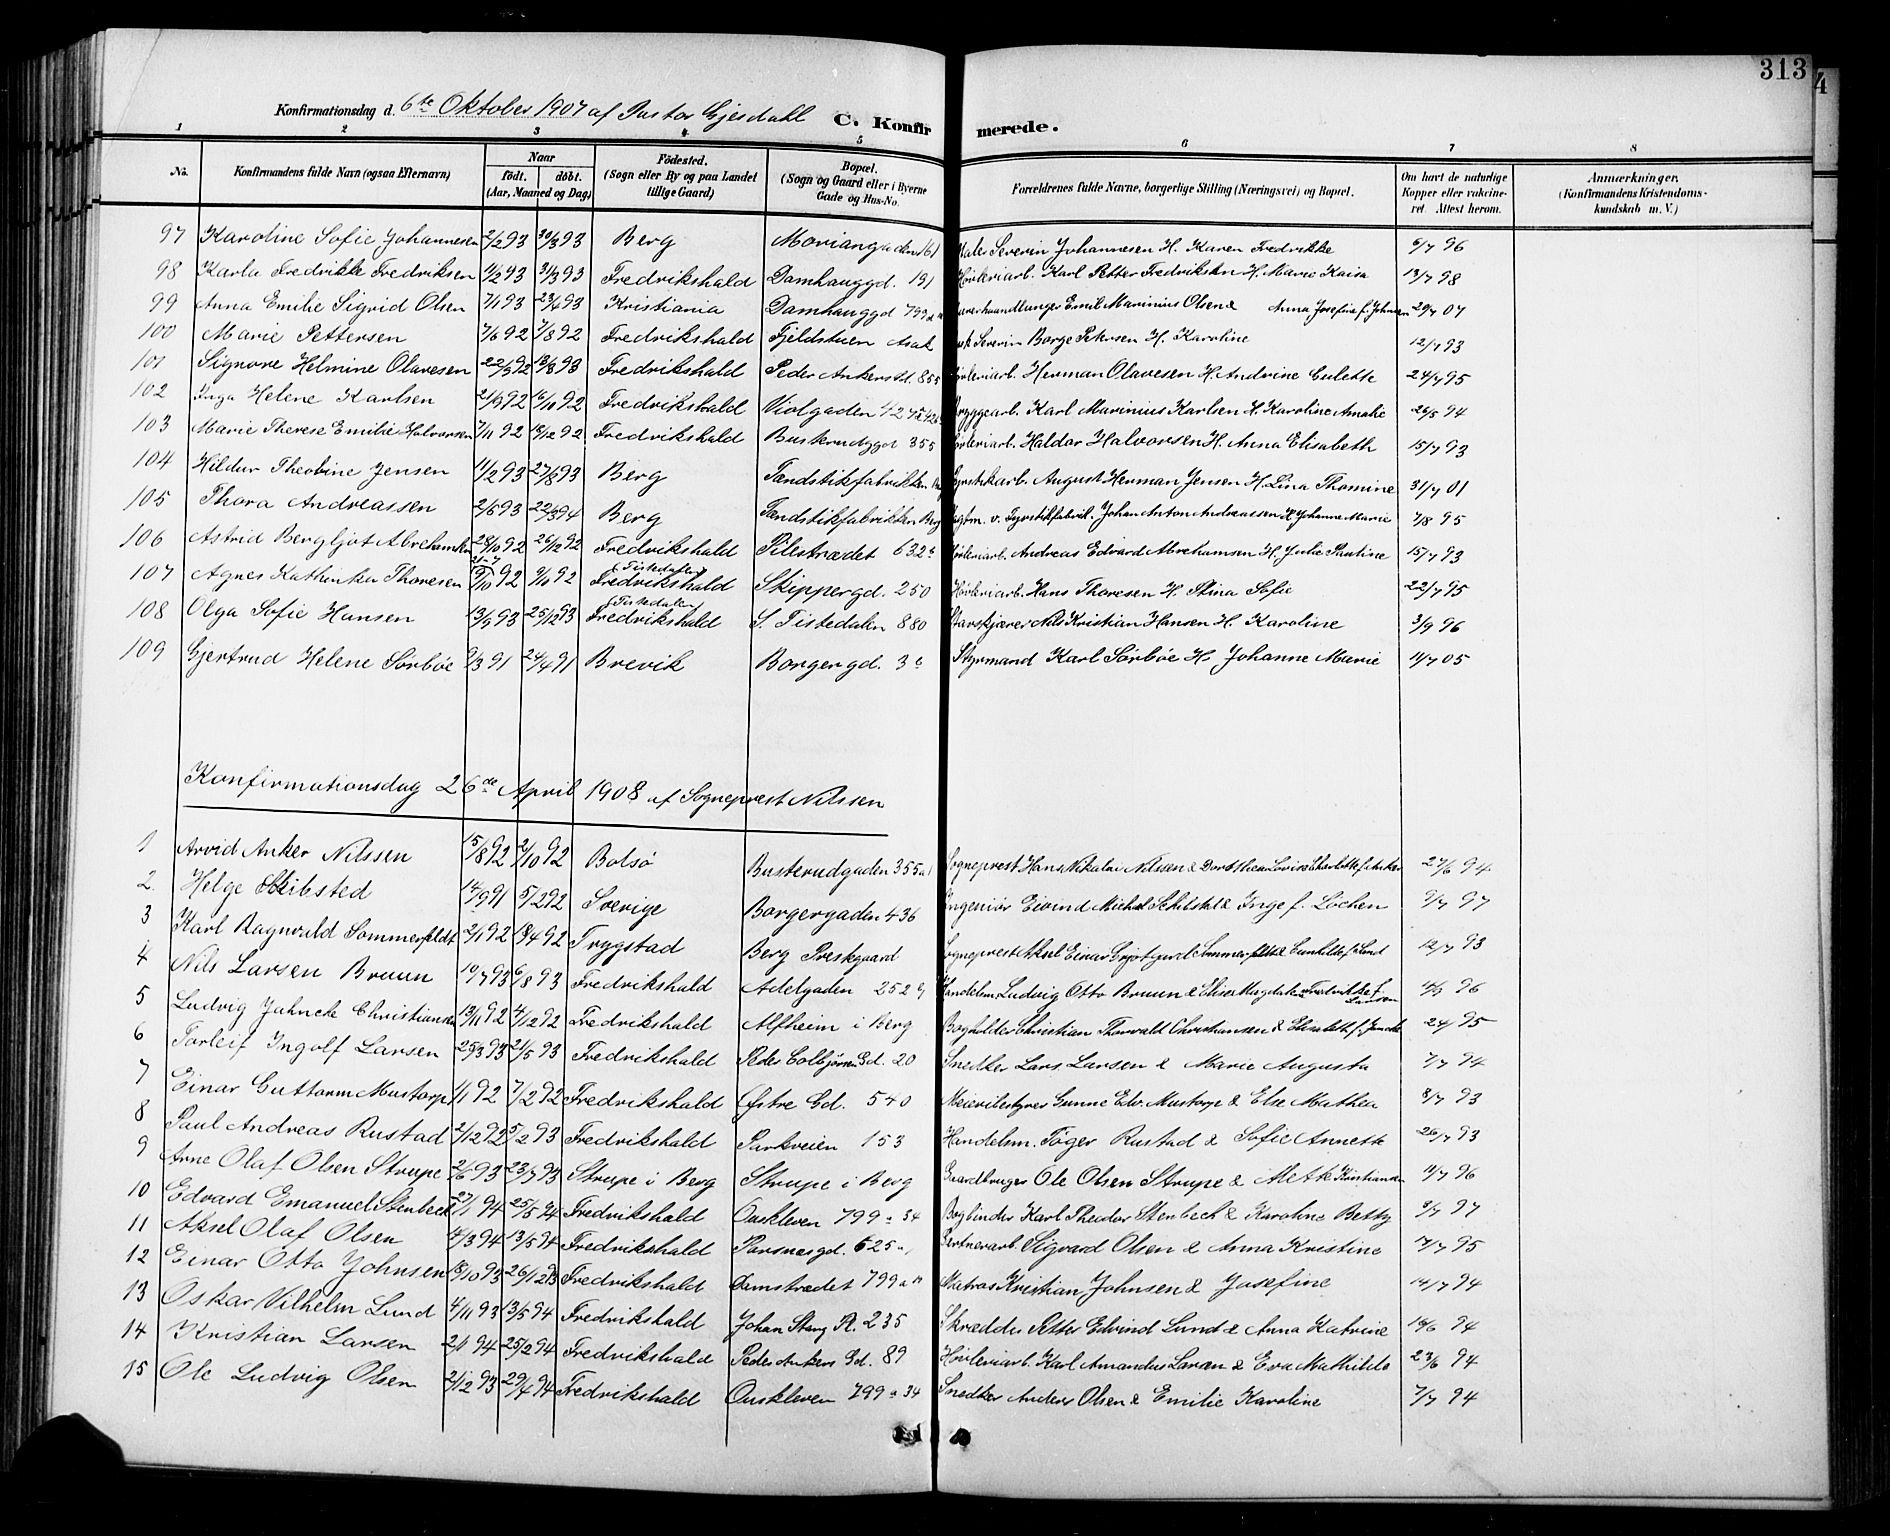 313
4
Konfirmationsdag d. 6te Oktober 1907 af Pastor Gjesdahl C. Konfirmerede.
1 2 3 4 5 6 7 8
No. Konfirmandens fulde Navn (ogsaa Efternavn) Naar født. døbt. (Aar, Maaned og Dag) Fødested. (Sogn eller By og paa Landet tillige Gaard) Bopæl. (Sogn og Gaard eller i Byerne Gade og Hus-No. Forældrenes fulde Navne, borgerlige Stilling (Næringsvei) og Bopæl. Om havt de naturlige Kopper eller vakcineret. Attest herom. Anmærkninger. (Konfirmandens Kristendomskundskab m. V.)
97 Karoline Sofie Johannesen 2/2 93 30/3 93 Berg Moriangaden 161 Severin Johannesen H. Karen Fredrikke 6/7 96
98 Karla Fredrikke Fredriksen 11/2 93 31/3 93 Fredrikshald Damhauggd. 191 Høvleriarb. Karl Petter Fredriksen H. Marie Kaisa 13/7 98
99 Anna Emilie Sigrid Olsen 7/1 93 23/4 93 Kristiania Damhauggd 799 Emil Marinius Olsen & Anna Josefine f. Johnsen 29/7 07
100 Marie Pettersen 7/6 92 7/8 92 Fredrikshald Fjeldstuen Asak Severin Borge Petersen H. Karoline 12/7 93
101 Signore Helmine Olavesen 22/9 92 Fredrikshald Peder Ankers 855 Høvleriarb. Herman Olavesen H. Andrine Gulette 24/7 95
102 Inga Helene Karlsen 21/9 92 16/10 92 Fredrikshald Violgaden Bryggearb. Karl Marinius Karlsen H. Karoline Amalie 26/5 94
103 Marie Therese Emilie Halvorsen 7/11 92 18/12 92 Fredrikshald Buskrudggd 355 Høvleriarb. Haldor Halvorsen H. Anna Elisabeth 15/7 93
104 Hildur Theobine Jensen 11/2 93 27/8 93 Berg Tændstikfabrikken Fyrstikarb. August Herman Jensen H. Lina Thomine 31/7 01
105 Thora Andreassen 2/6 93 22/3 94 Berg Tændstikfabrikken Berg v. Fyrstikfabrik. Johan Anton Andreassen H. Johanne Marie 7/8 95
106 Astrid Bergljot Abrehamsen 28/10 92 26/12 92 Fredrikshald Pilestrædet 632 Høvleriarb. Andreas Edvard Abrehamsen H. Julie Pauline 15/7 93
107 Agnes Kathinka Thoresen 9/10 92 9/10 92 (Tistedalen) Fredrikshald Skippergd. 250 Høvleriarb. Hans Thoresen H. Stina Sofie 22/7 95
108 Olga Sofie Hansen 13/9 93 25/12 93 (Tistedalen) Fredrikshald S. Tistedalen 880 Stavskjærer Nils Kristian Hansen H. Karoline 3/9 96
109 Gjertrud Helene Sørbøe 9/3 91 24/4 91 Brevik Borgergd. 3 Styrmand Karl Sørbøe H. Johanne Marie 11/7 05
Konfirmationsdag 26de April 1908 af Sogneprest Nilssen
1 Arvid Anker Nilssen 15/8 92 2/10 92 Bolsø Busterudgaden 355 Sogneprest Hans Nikolai Nilssen & Dorothea Lovise Charlotte f. Anker 27/6 94
2 Helge Skibsted 14/9 91 5/2 92 Sverige Borgergaden 436 Ingeniør Eivind Michael Schibsted & Inge f. Lochen 9/7 97
3 Karl Ragnvald Sommerfeldt 2/1 92 18/4 92 Trygstad Berg Prestgaard Sogneprest Aksel Einar Grjotgard Sommerfeldt & Gunhilde f. Lund 12/7 93
4 Nils Larsen Bruun 10/7 93 6/8 93 Fredrikshald Adelgaden 252 Handelsm. Ludvig Otto Bruun & Elise Magdalene Fredrikke f. Larsen 4/9 96
5 Ludvig Jahncke Christiansen 13/11 92 4/12 92 Fredrikshald Alfheim i Berg Bogholder Christian Thorvald Christiansen & Elisabeth f. Jahncke 24/7 95
6 Torleif Ingolf Larsen 25/3 93 21/5 93 Fredrikshald Peder Colbjørns Gd. 20 Snedker Lars Larsen & Marie Augusta 7/7 94
7 Einar Guttorm Mustorp 1/1 92 7/2 92 Fredrikshald Østre Gd. 540 Meieribestyrer Gunne Edv. Mustorp & Else Mathea 8/7 93
8 Paul Andreas Rustad 2/12 92 5/2 93 Fredrikshald Parkveien 153 Handelsm. Tøger Rustad & Sofie Annette 26/7 93
9 Arne Olaf Olsen Strupe 2/6 93 23/7 93 Strupe i Berg Strupe i Berg Gaardbruger Ole Olsen Strupe & Mette Kristiansen 11/7 96
10 Edvard Emanuel Stenbeck 27/1 94 25/5 94 Fredrikshald Ouskleven 799 a 34 Bogbinder Karl Theodor Stenbeck & Karoline Betty 3/7 97
11 Aksel Olaf Olsen 14/3 94 13/5 94 Fredrikshald Garsnesgd. 525 Gertnerarb. Sigvard Olsen & Anna Kristine 17/7 95
12 Einar Otto Johnsen 18/10 93 26/12 93 Fredrikshald Damstrædet 799 a Matros Kristian Johnsen & Josefine 14/7 94
13 Oskar Vilhelm Lund 4/11 93 13/5 94 Fredrikshald Johan Stang Pl. 235 Skrædder Petter Edvind Lund & Anna Katrine 16/6 94
14 Kristian Larsen 2/1 94 25/2 94 Fredrikshald Peder Ankers Gd. 89 Høvleriarb. Karl Amandus Larsen & Eva Mathilde 23/6 94
15 Ole Ludvig Olsen 2/12 93 29/4 94 Fredrikshald Ouskleven 799 a 34 Snedker Anders Olsen & Emilie Karoline 7/7 94